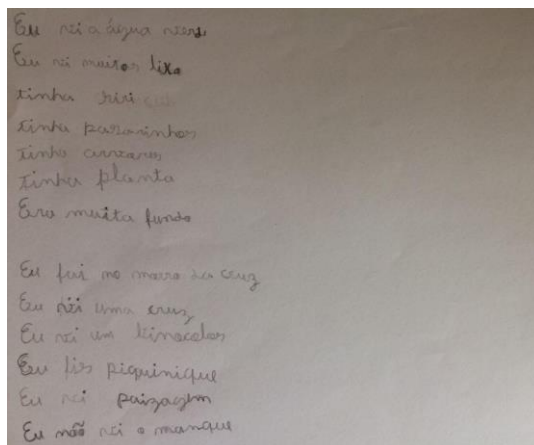 Eu vi a água verde
Eu vi muitos lixo
tinha siri
tinha pasarinhos
tinha
tinha planta
Era muita fundo
Eu fui no morro da cruz
Eu vi uma cruz
Eu vi um binocolos
Eu fis piquinique
Eu vi paizagem
Eu não vi o mangue